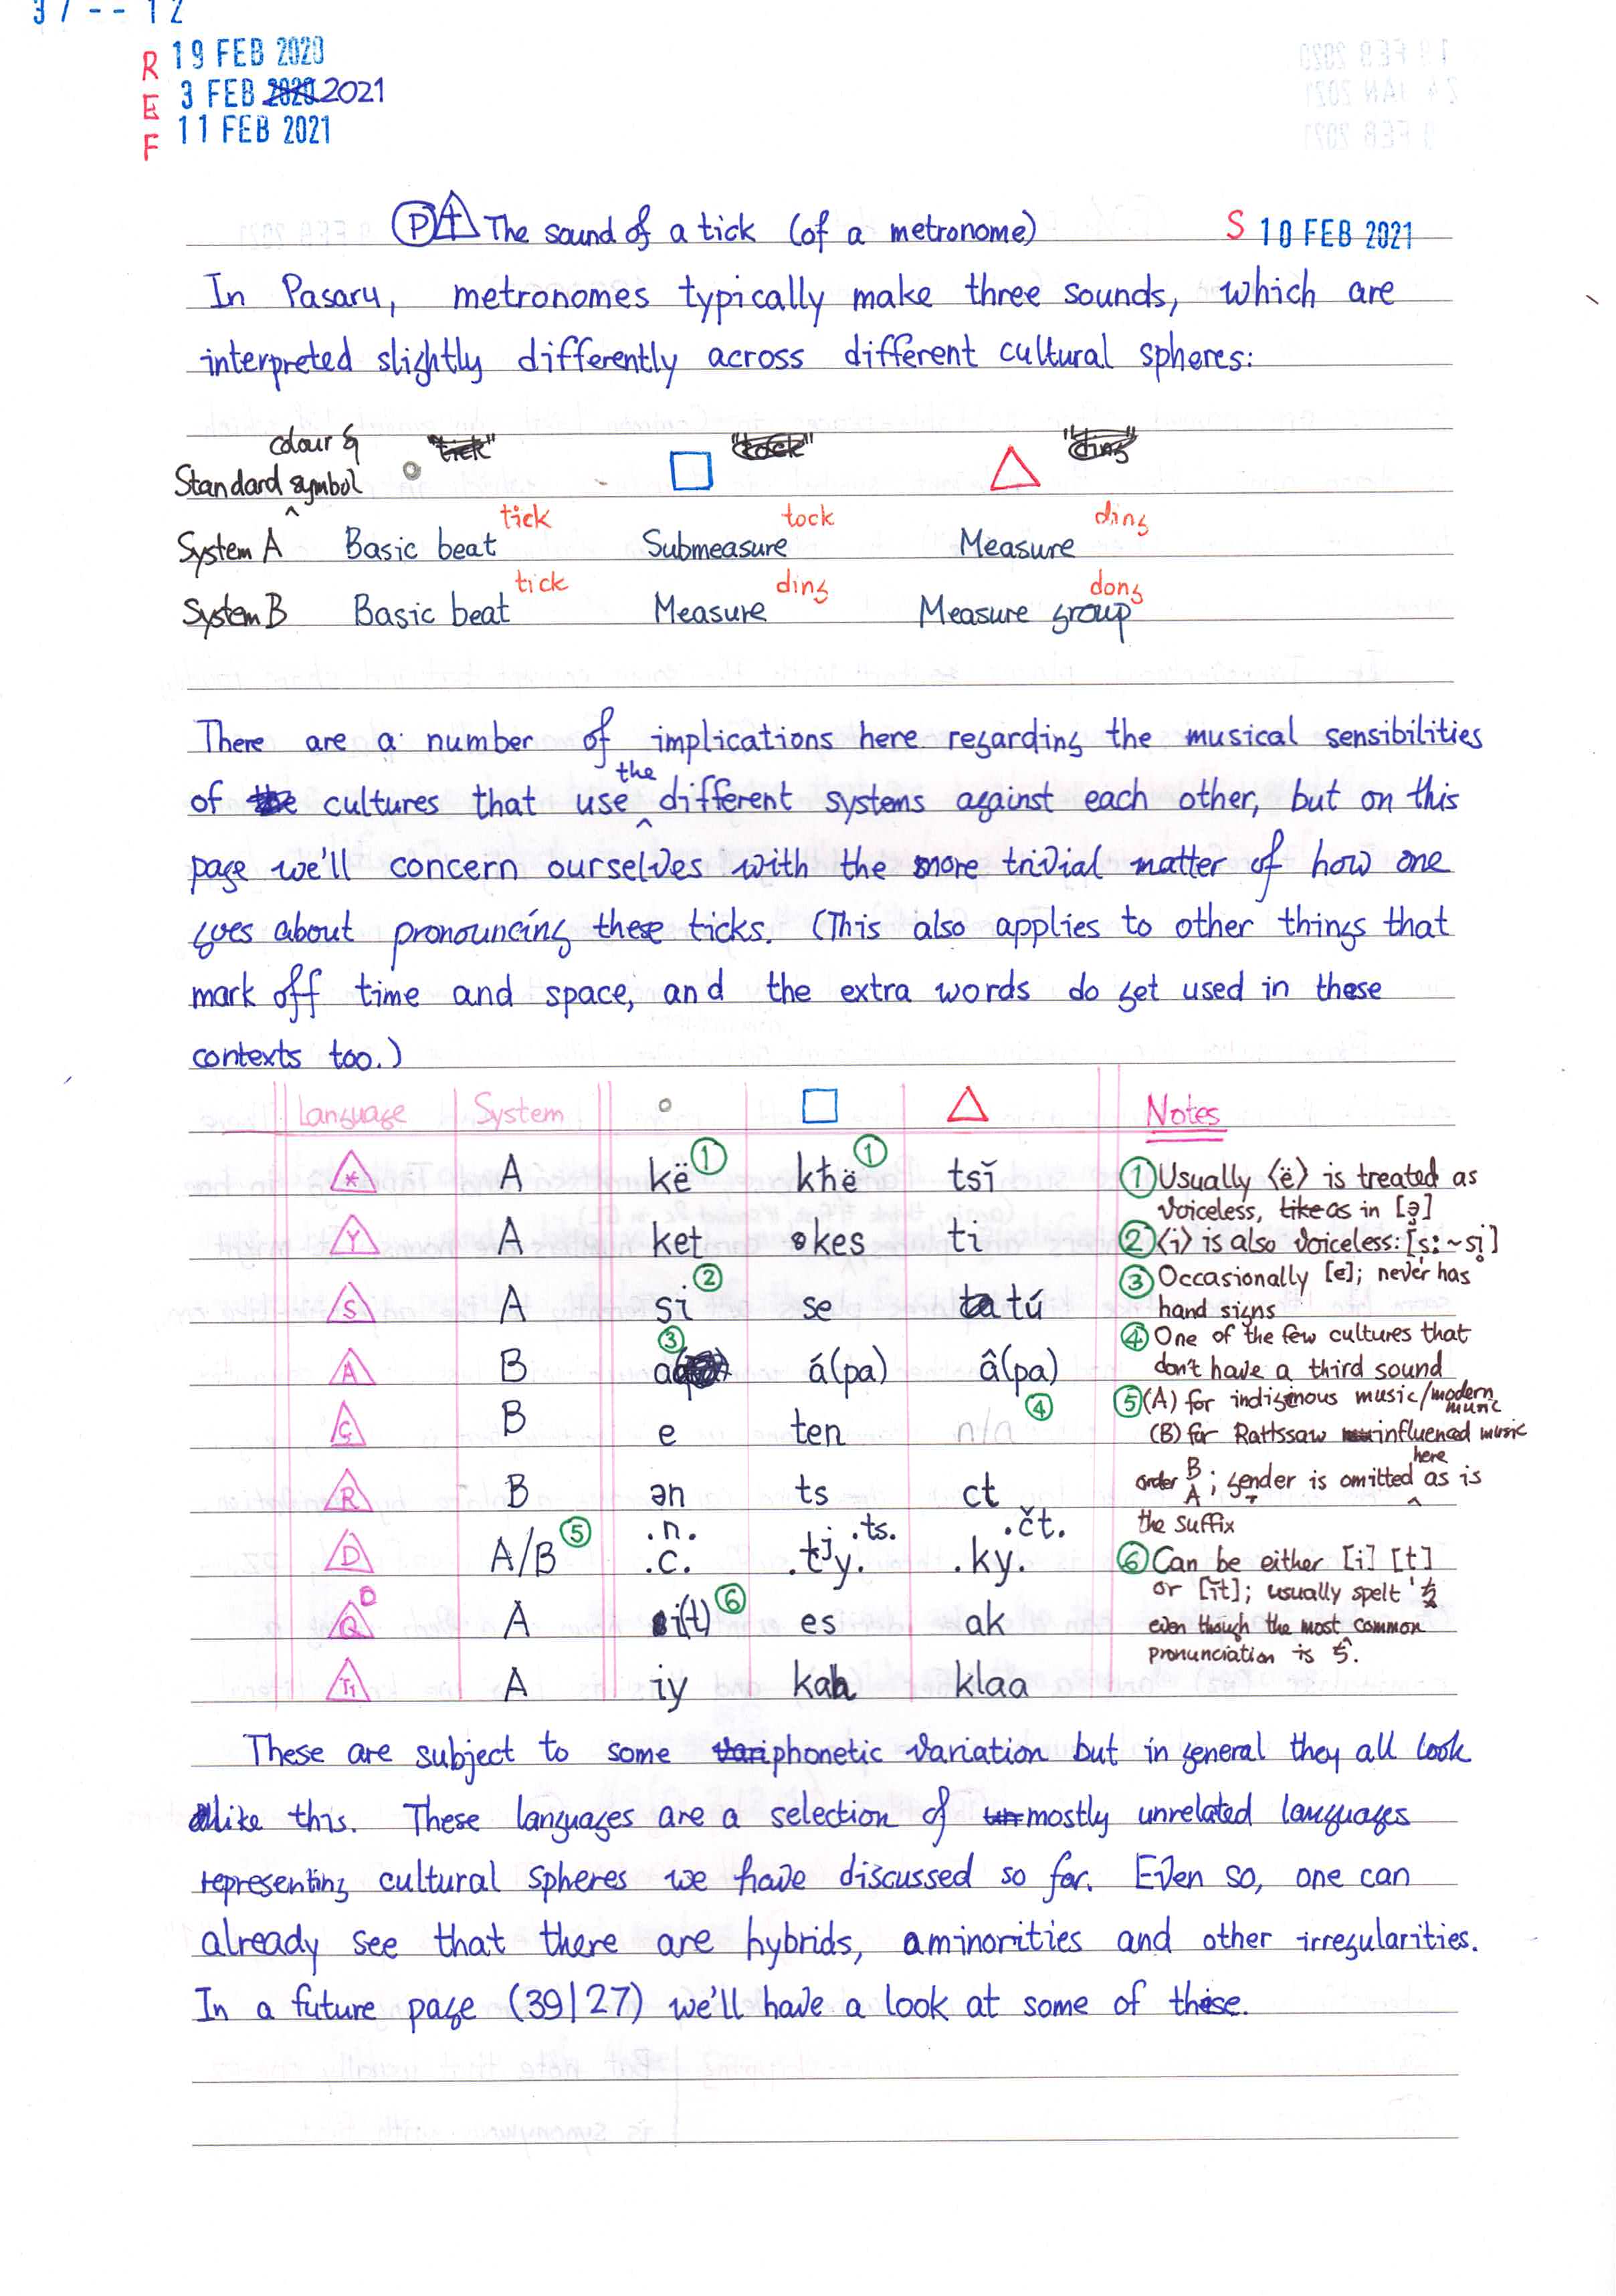 37--12
R 19 FEB 2020
E 3 FEB 2020 2021
F 11 FEB 2021
P The sound of a tick (of a metronome) S 10 FEB 2021
In Pasaru, metronomes typically make three sounds, which are
interpreted slightly differently across different cultural spheres:
colour & "tick" "tock" "ding"
Standard symbol
tick tock ding
System A Basic beat Submeasure Measure
tick ding dong
System B Basic beat Measure Measure group
There are a number of implications here regarding the musical sensibilities
of the cultures that use the different systems against each other, but on this
page we'll concern ourselves with the more trivial matter of how one
goes about pronouncing these ticks. (This also applies to other things that
mark off time and space, and the extra words do get used in these
contexts too.)
Language System ○ □ △ Notes
* A kë ① khë ① tsĭ
Y A ket kes ti
S A si ② se tú
A B a ③ á(pa) â(pa)
Ç B e ten n/a ④
R B ən ts ct
.n. .ts. .čt.
D A/B ⑤ .c. .tʲy. .ky.
Q A i(t) ⑥ es ak
T1 A iy kah klaa
① Usually ⟨ë⟩ is treated as
voiceless, like as in [ə̥]
② ⟨i⟩ is also voiceless: [s̩ː~si̥]
③ Occasionally [e]; never has
hand signs
④ One of the few cultures that
don't have a third sound
⑤ (A) for indigenous music/modern music
(B) for Rattssaw influenced music
order B A; gender is omitted here as is
the suffix
⑥ Can be either [i] [t]
or [it]; usually spelt
even though the most common
pronunciation is
These are subject to some phonetic variation but in general they all look
like this. These languages are a selection of mostly unrelated languages
representing cultural spheres we have discussed so far. Even so, one can
already see that there are hybrids, minorities and other irregularities.
In a future page (39/27) we'll have a look at some of these.